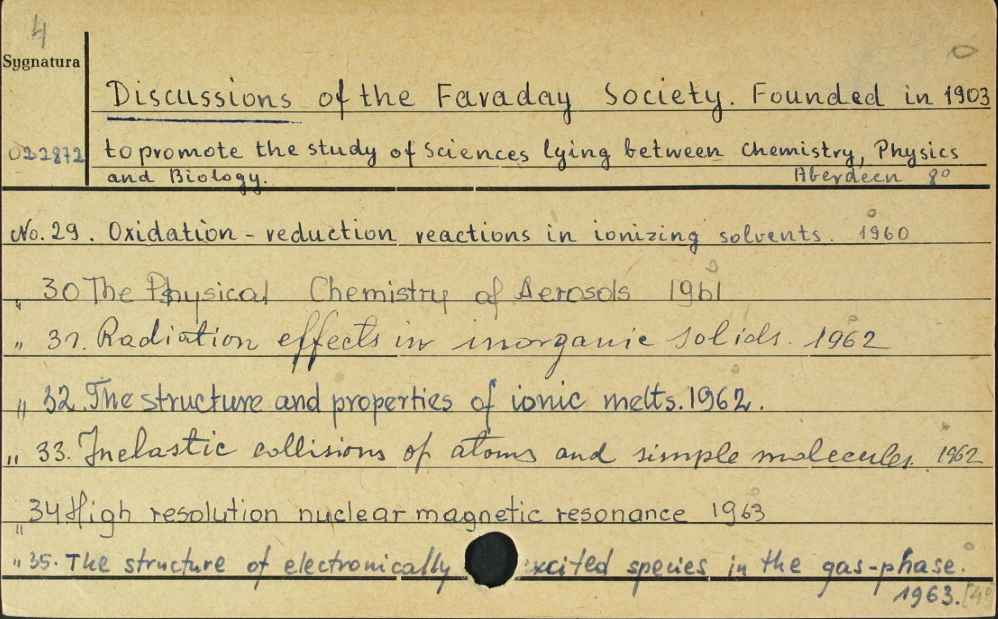 4
Sygnatura
Discussions of the Faraday Society. Founded in 1903
022872 to promote the study of Sciences lying between Chemistry, Physics
and Biology. Aberdeen 8°
No. 29. Oxidation - reduction reactions in ionizing solvents. 1960
" 30 The Physical Chemistry of Aerosols 1961
" 31. Radiation effects in inorganic solids. 1962
" 32. The structure and properties of ionic melts. 1962.
" 33. Inelastic collisions of atoms and simple molecules. 1962
" 34 High resolution nuclear magnetic resonance 1963
" 35. The structure of electronically xcited species in the gas-phase.
1963.